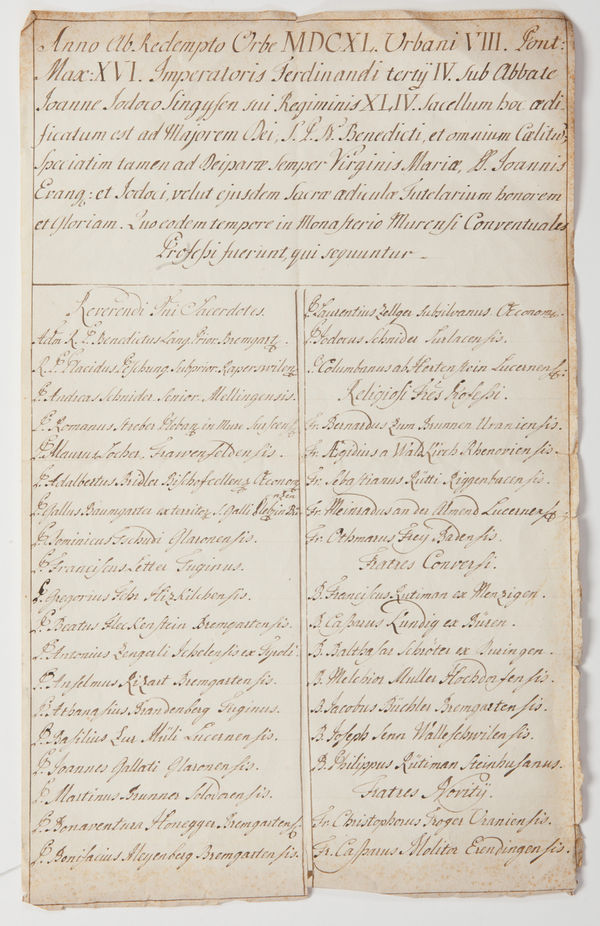 Anno Ab Redempto Orbe MDCXL. Urbani VIII. Pont:
Max: XVI. Imperatoris Ferdinandi tertij IV. Sub Abbate
Joanne Jodoco Singysen sui Regiminis XLIV. Sacellum hoc ædi-
ficatum est ad Majorem Dei, S. P. N. Benedicti, et omnium Cælitum,
Speciatim tamen ad Deiparæ semper Virginis Mariæ, SS. Joannis
Evang: et Jodoci, velut ejusdem Sacræ ædiculæ Tutelarium honorem
et Gloriam. Quo eodem tempore in Monasterio Murensi Conventuales
Professi fuerunt, qui sequuntur.
Reverendi Sacerdotes.
R. P. Benedictus Lang Prior Bremgart.
R. P. Placidus Subprior Raperswilen.
P. Andreas Schnider Senior Mellingensis.
P. Romanus Streber in Mure
P. Maurus Locher Frawenfeldensis.
P. Adalbertus Bridler Bischofcellens. Œconom
P. Gallus Baumgarter ex territor. S. Galli
P. Dominicus Tschudi Glaronensis.
P. Franciscus Letter Tuginus.
P. Gregorius Fehr
P. Beatus Fleckenstein Bremgartensis.
P. Antonius Zengerli ex Tyroli.
P. Anselmus Bremgartensis.
P. Athanasius Brandenberg Tuginus.
P. Basilius Zur Müli Lucernensis.
P. Joannes Gallati Glaronensis.
P. Martinus Brunner Solodorensis.
P. Bonaventura Honegger Bremgartens.
P. Bonifacius Weyenberg Bremgartensis.
P. Laurentius Zellger Subsilvanus. Œconom.
P. Jodocus Schnider Surlacensis.
P. Columbanus ab Hertenstein Lucernens.
Religiosi Frēs Professi.
Fr. Bernardus Zum Brunnen Uraniensis.
Fr. Ægidius a Waldkirch Rhenoviensis.
Fr. Sebastianus Rütti Riggenbacensis.
Fr. Meinradus an der Almend Lucernens.
Fr. Othmarus Frey Badensis.
Fratres Conversi.
B. Franciscus Rutiman ex Menzigen.
B. Casparus Kundig ex Büren.
B. Balthasar Schröter ex
B. Melchior Muller Hochdorfensis.
B. Jacobus Büchler Bremgartensis.
B. Joseph Senn Walleschwilensis.
B. Philippus Rütiman Steinhusanus.
Fratres Novitij.
Fr. Christophorus Troger Uraniensis.
Fr. Casparus Molitor Erendingensis.